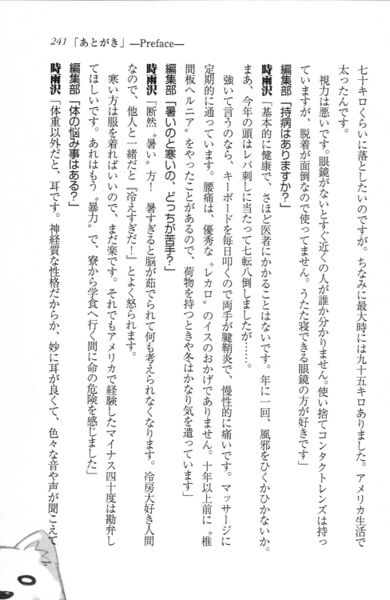 241 「あとがき」―Preface―
七十キロくらいに落としたいのですが。ちなみに最大時には九十五キロありました。アメリカ生活で
太ったんです。
視力は悪いです。眼鏡がないとすぐ近くの人が誰か分かりません。使い捨てコンタクトレンズは持っ
ていますが、脱着が面倒なので使ってません。うたた寝できる眼鏡の方が好きです」
編集部「持病はありますか？」
時雨沢「基本的に健康で、さほど医者にかかることはないです。年に一回、風邪をひくかひかないか。
まあ、今年の頭はレバ刺しに当たって七転八倒しましたが……。
強いて言うのなら、キーボードを毎日叩くので両手が腱鞘炎で、慢性的に痛いです。マッサージに
定期的に通っています。腰痛は、優秀な〝レカロ〟のイスのおかげでありません。十年以上前に〝椎
間板ヘルニア〟をやったことがあるので、荷物を持つときや冬はかなり気を遣っています」
編集部「暑いのと寒いの、どっちが苦手？」
時雨沢「断然〝暑い〟方！　暑すぎると脳が茹でられて何も考えられなくなります。冷房大好き人間
なので、他人と一緒だと『冷えすぎだ！』とよく怒られます。
寒い方は服を着ればいいので、まだ楽です。それでもアメリカで経験したマイナス四十度は勘弁し
てほしいです。あれはもう〝暴力〟で、寮から学食へ行く間に命の危険を感じました」
編集部「体の悩み事はある？」
時雨沢「体重以外だと、耳です。神経質な性格だからか、妙に耳が良くて、色々な音や声が聞こえて